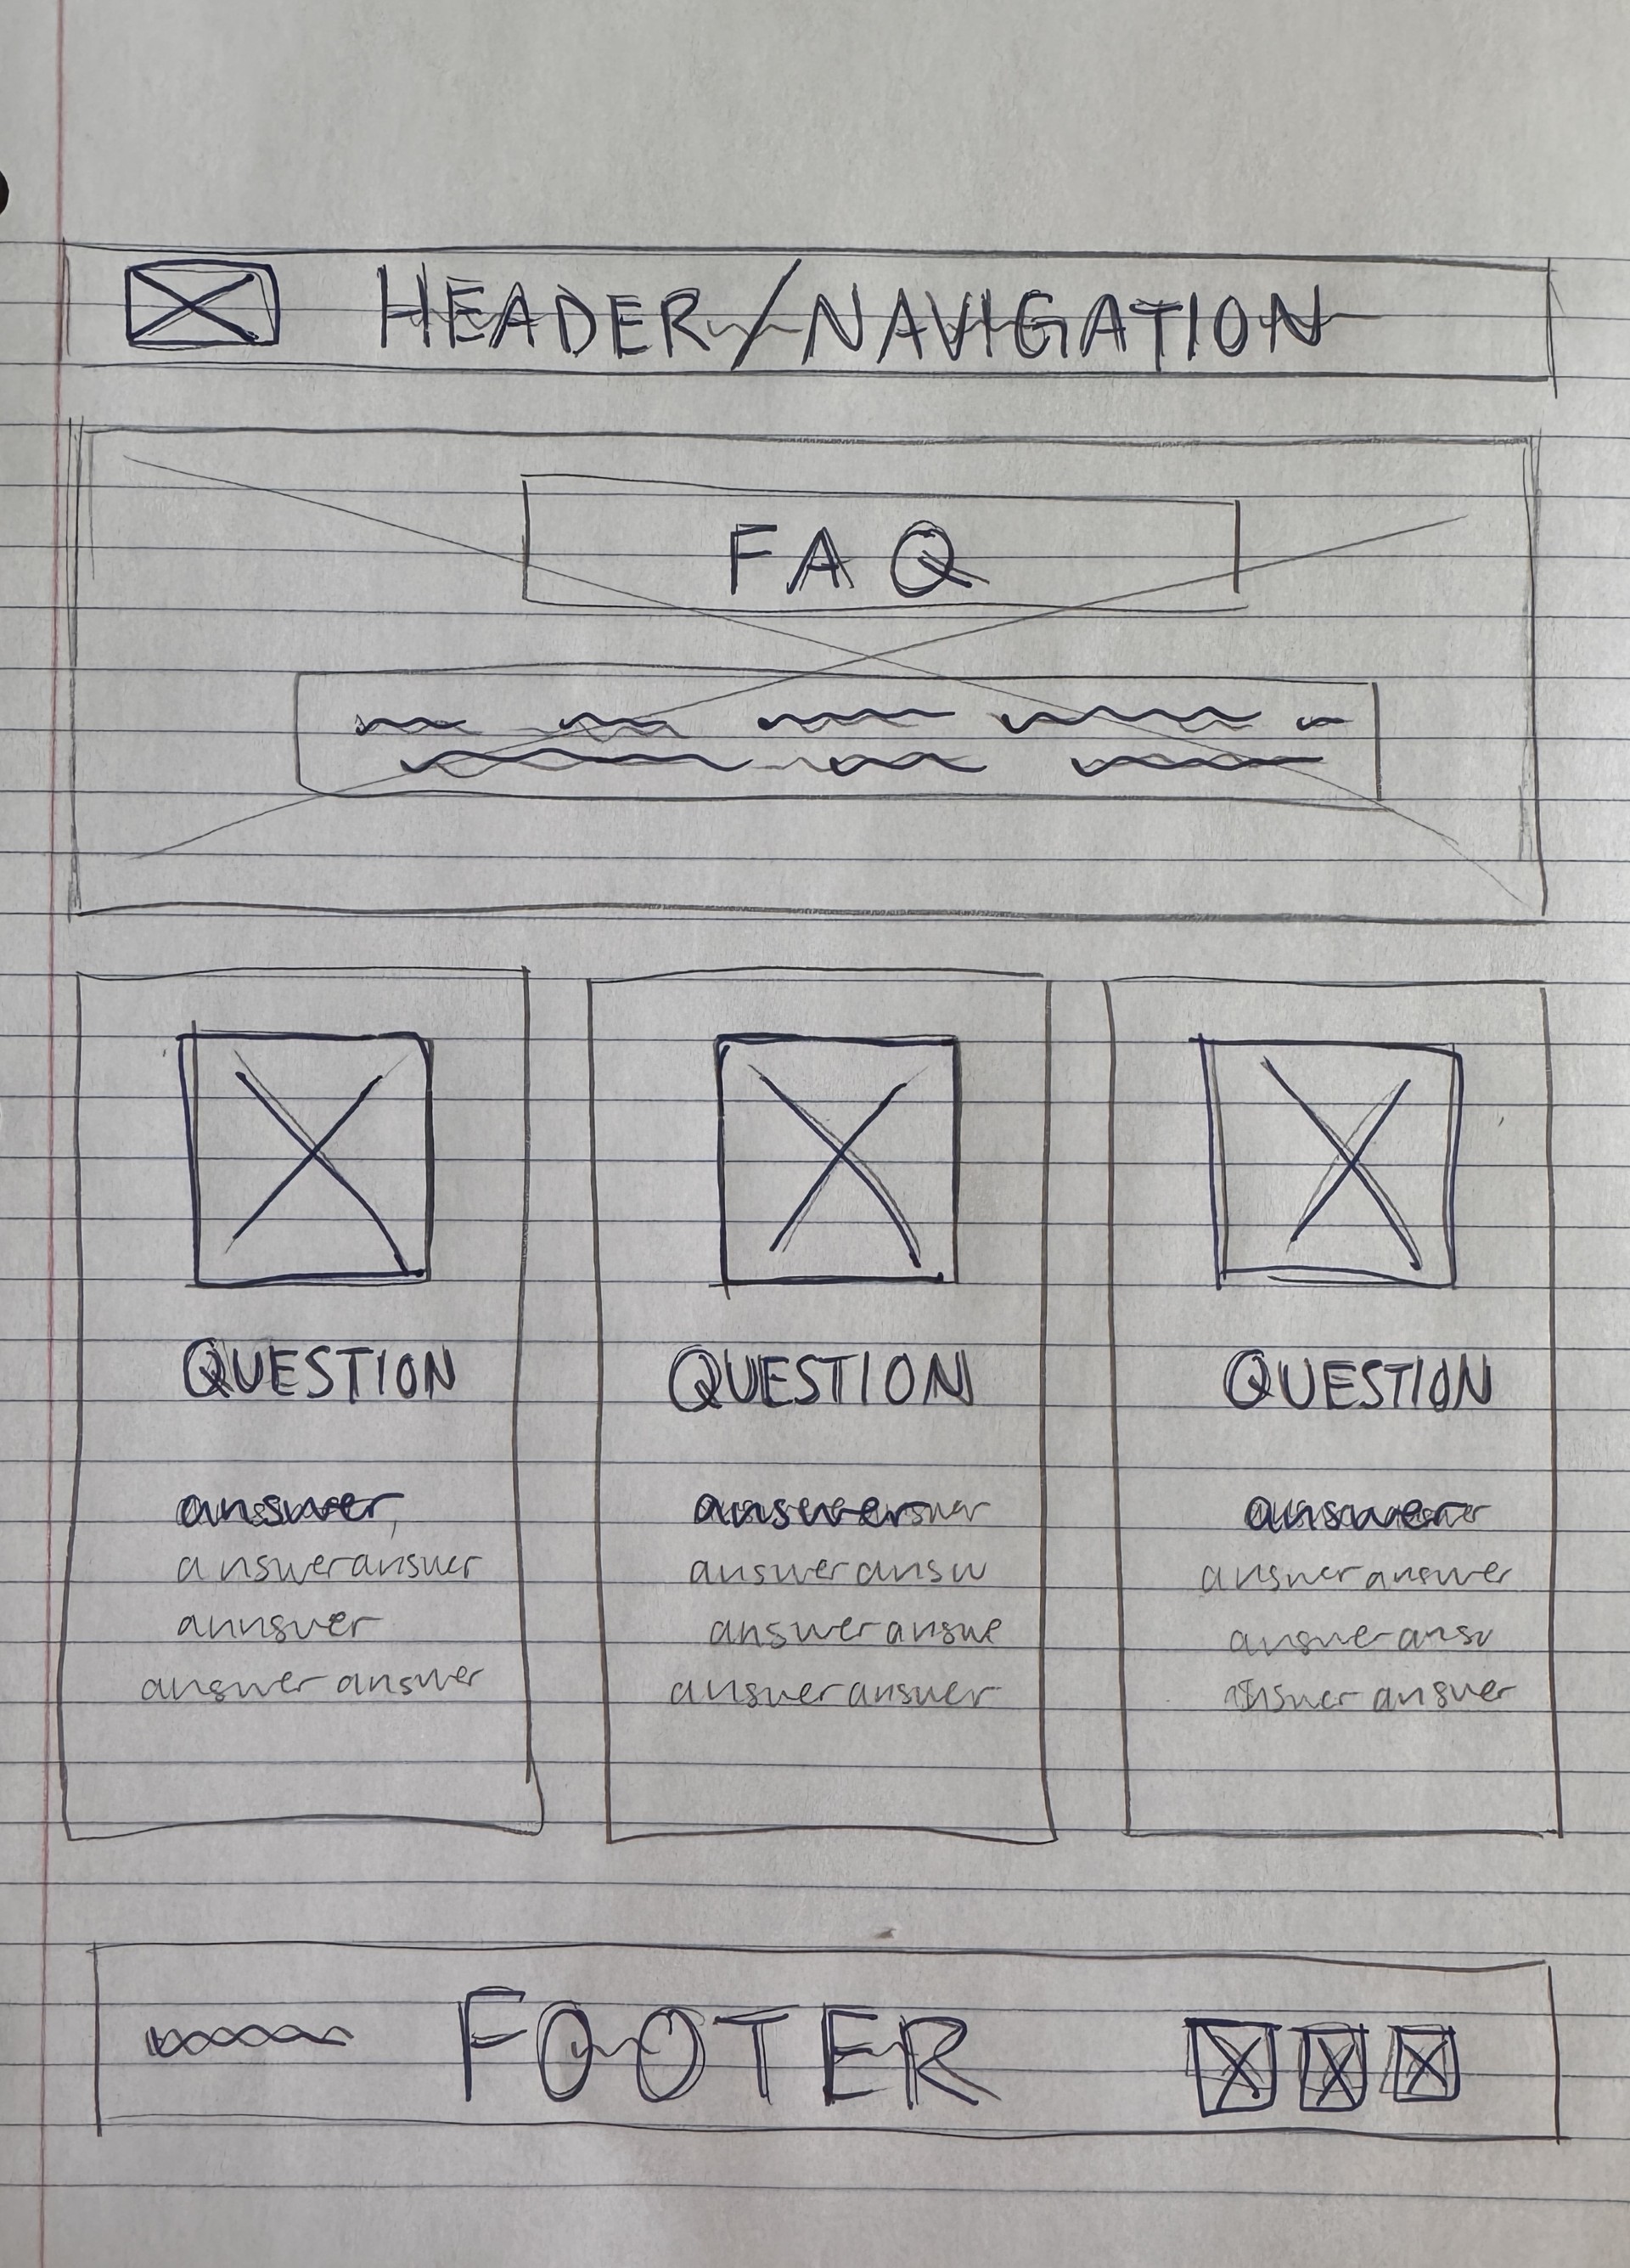 HEADER/NAVIGATION
FAQ
QUESTION
answer
answeranswer
annswer
answer answer
QUESTION
answeranswer
answeransw
answeranswe
answeranswer
QUESTION
answer
answeranswer
answeransw
answer answer
FOOTER